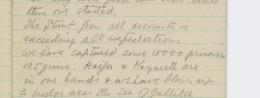 then one started.
The Stunt from all accounts is
exceeding all expectations.
We have captured some 18000 prisoners
125 guns. Haifa & Nazareth are
in our hands & we have blown up
a bridge near the Sea of Galilee